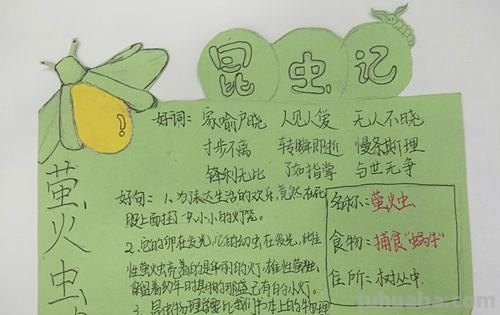 昆虫记
萤火虫
好词：家喻户晓 人见人爱 无人不晓
寸步不离 转瞬即逝 慢条斯理
锋利无比 了如指掌 与世无争
好句：1、为了表达生活的欢乐，竟然在屁
股上面挂了一只小小的灯笼。
2、它的卵在发光，它的幼虫在发光，此
性萤火虫亮着的是年明的灯，雄性萤火虫
保留着幼年时具有的那盏已有的小灯。
名称：萤火虫
食物：捕食"蜗牛"
住所：树丛中
tuhuaba.com